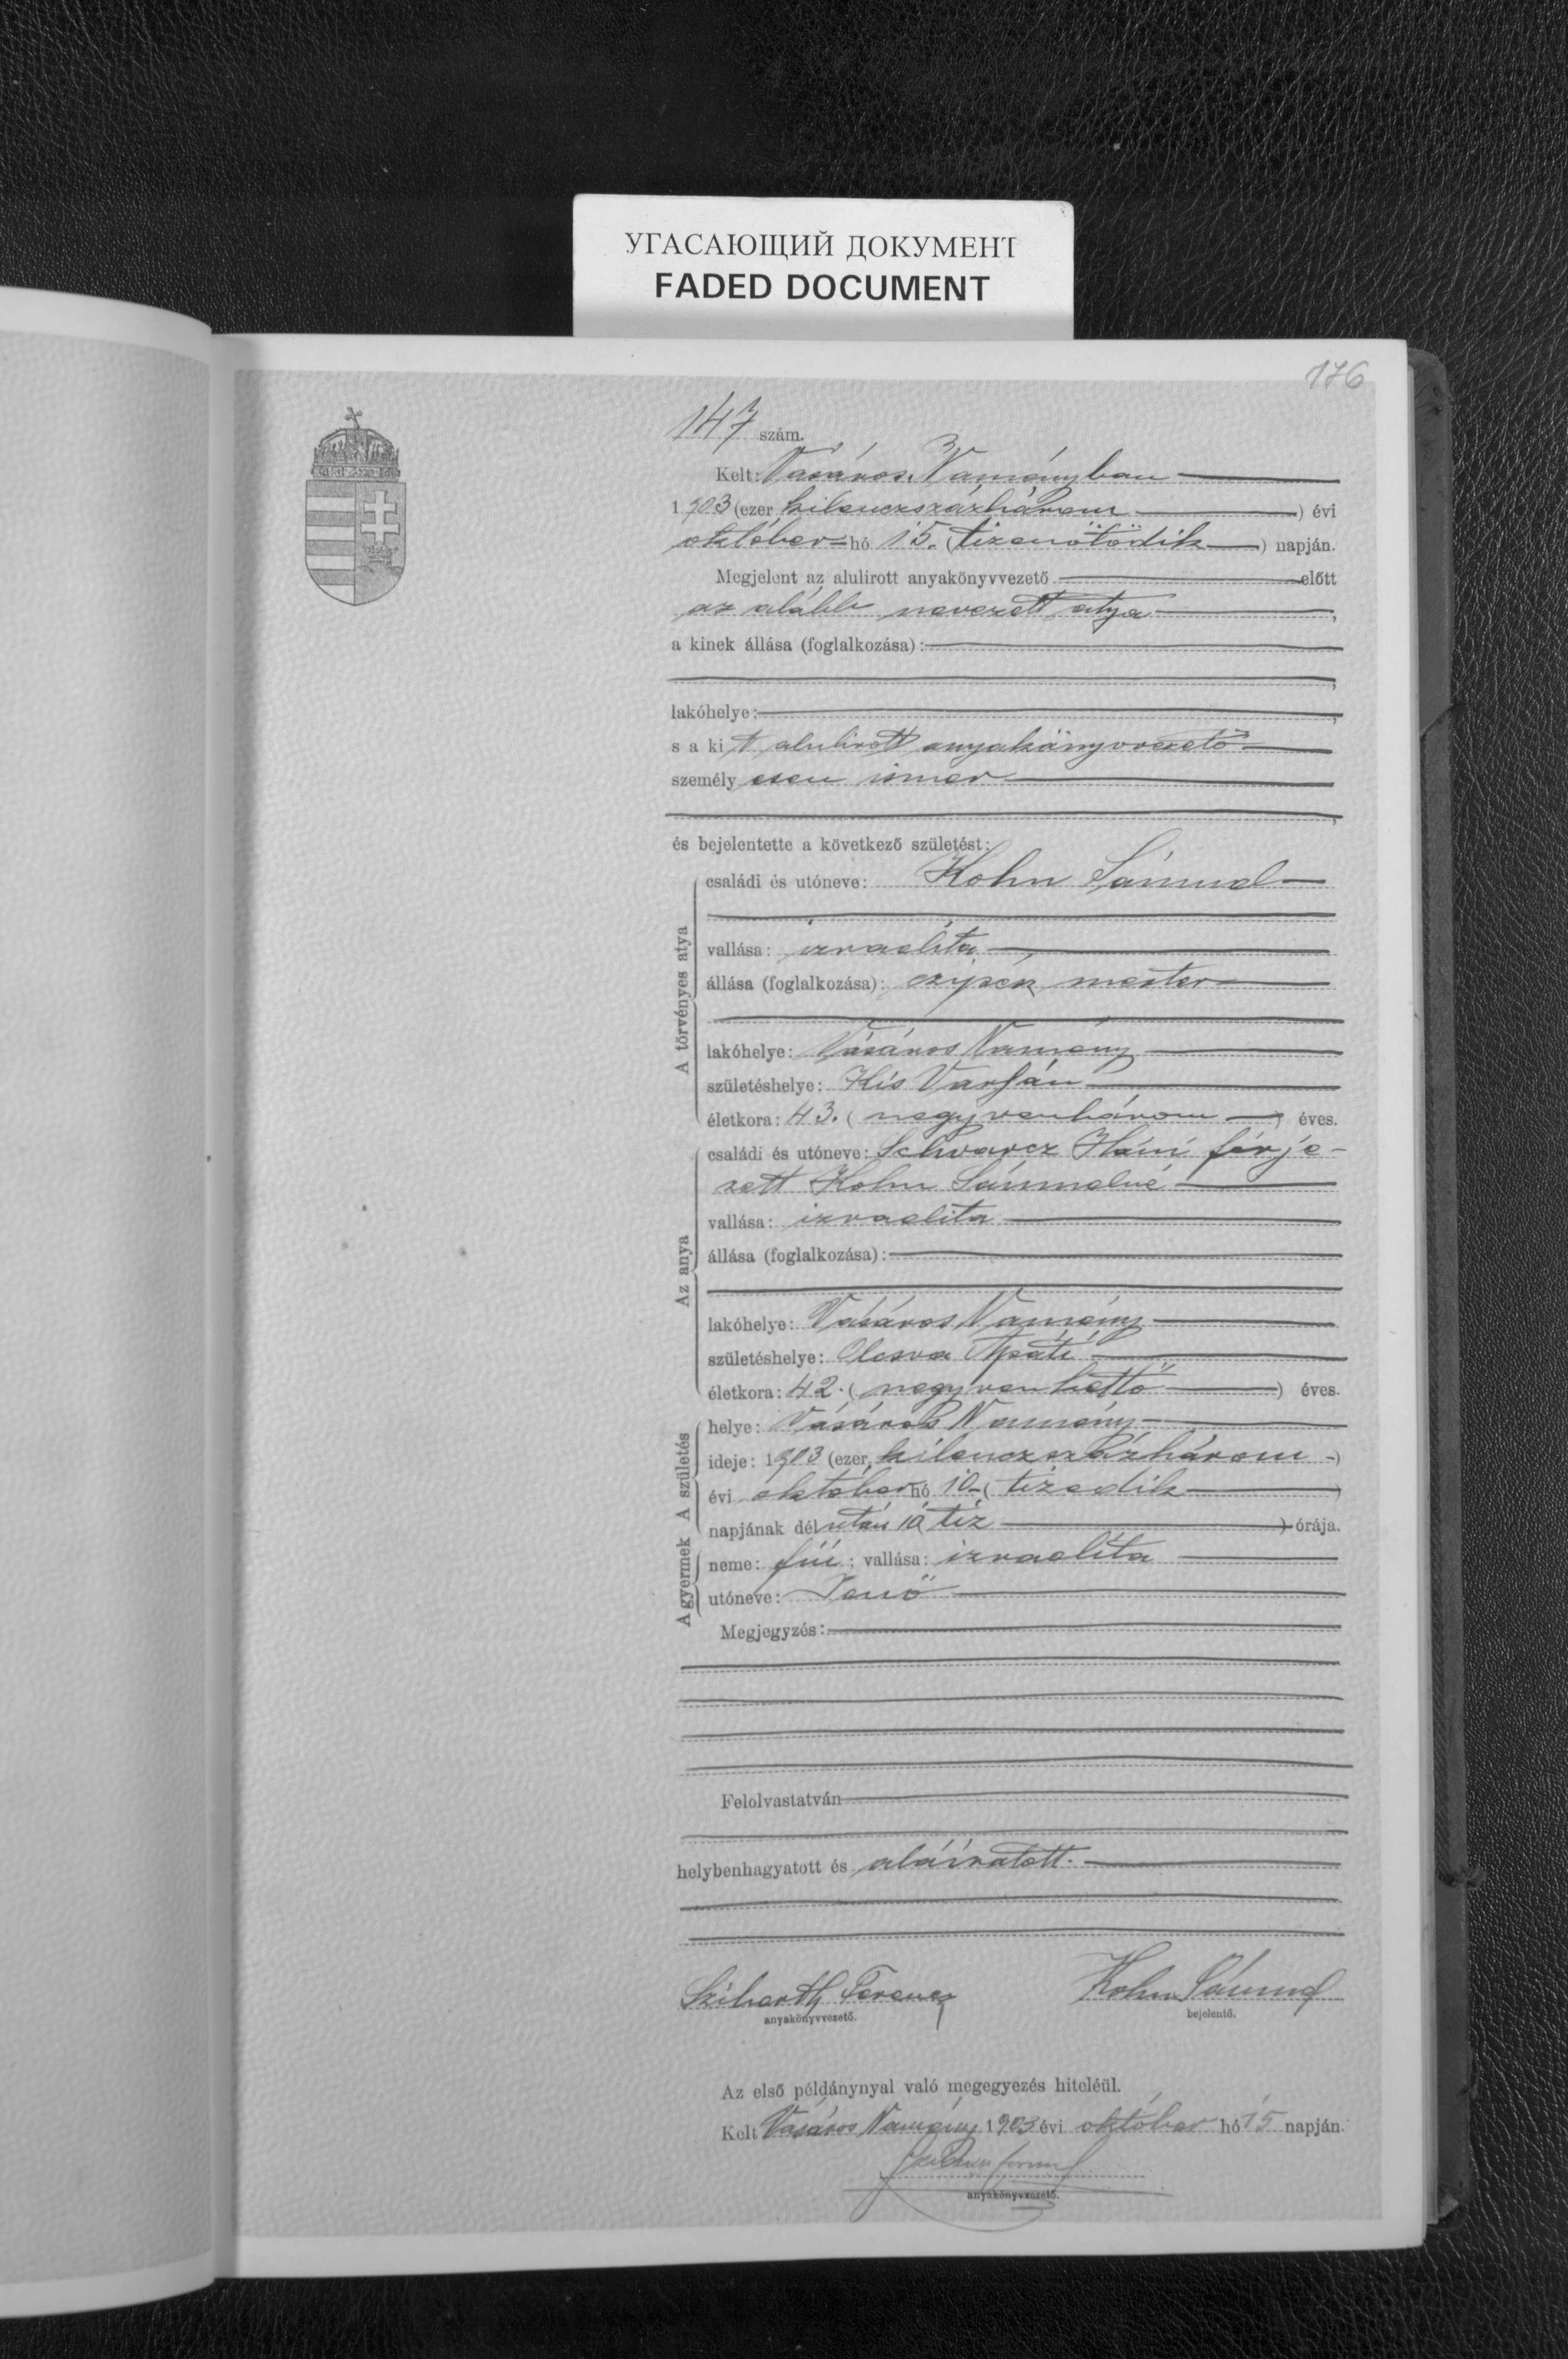 УГАСАЮЩИЙ ДОКУМЕНТ
FADED DOCUMENT
176
147 szám.
Kelt: Vásáros Naményban
1903 (ezer kilenczszázhárom) évi
október hó 15. (tizenötödik) napján.
Megjelent az alulirott anyakönyvvezető előtt
az alább nevezett atya,
a kinek állása (foglalkozása):
lakóhelye:
s a kit alulirott anyakönyvvezető
személyesen ismer
és bejelentette a következő születést:
A törvényes atya
családi és utóneve: Kohn Sámuel
vallása: izraelita
állása (foglalkozása): czipész mester
lakóhelye: Vásáros Namény
születéshelye: Kis Varsán
életkora: 43. (negyvenhárom) éves.
Az anya
családi és utóneve: Schvarcz Háni férje-
zett Kohn Sámuelné
vallása: izraelita
állása (foglalkozása):
lakóhelye: Vásáros Namény
születéshelye: Olcsva Apáti
életkora: 42. (negyvenkettő) éves.
A születés
helye: Vásáros Namény
ideje: 1903 (ezer kilenczszázhárom)
évi október hó 10 (tizedik)
napjának délután 10 tiz) órája.
A gyermek
neme: fiú; vallása: izraelita
utóneve: Jenő
Megjegyzés:
Felolvastatván
helybenhagyatott és aláíratott.
Ferencz Kohn Sámuel
anyakönyvvezető. bejelentő.
Az első példánynyal való megegyezés hiteléül.
Kelt Vásáros Namény 1903 évi október hó 15 napján.
anyakönyvvezető.